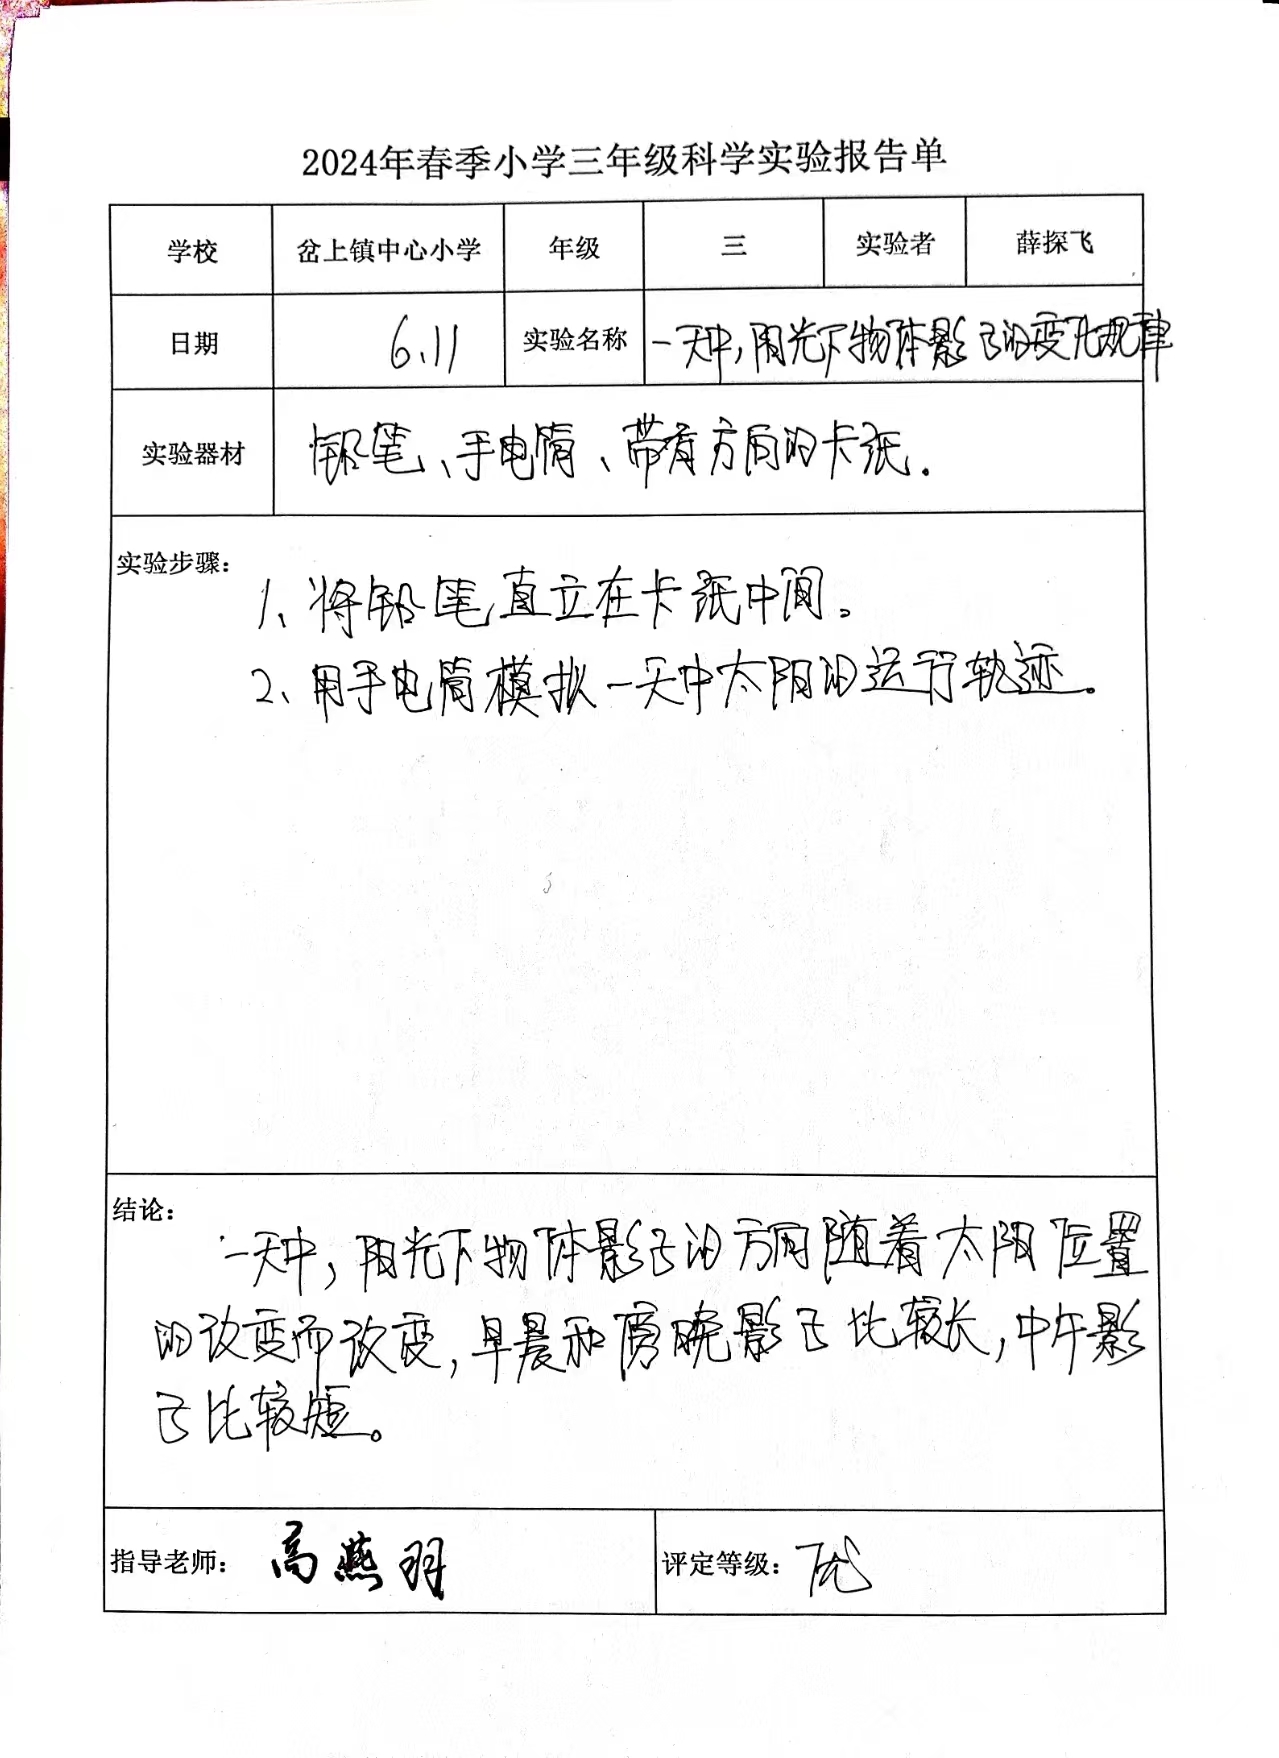 2024年春季小学三年级科学实验报告单
学校 岔上镇中心小学 年级 三 实验者 薛探飞
日期 6.11 实验名称 一天中，阳光下物体影子的变化规律
实验器材 铅笔、手电筒、带有方向的卡纸.
实验步骤：
1、将铅笔直立在卡纸中间。
2、用手电筒模拟一天中太阳的运行轨迹。
结论：
一天中，阳光下物体影子的方向随着太阳位置
的改变而改变，早晨和傍晚影子比较长，中午影
子比较短。
指导老师： 高燕羽 评定等级： 优